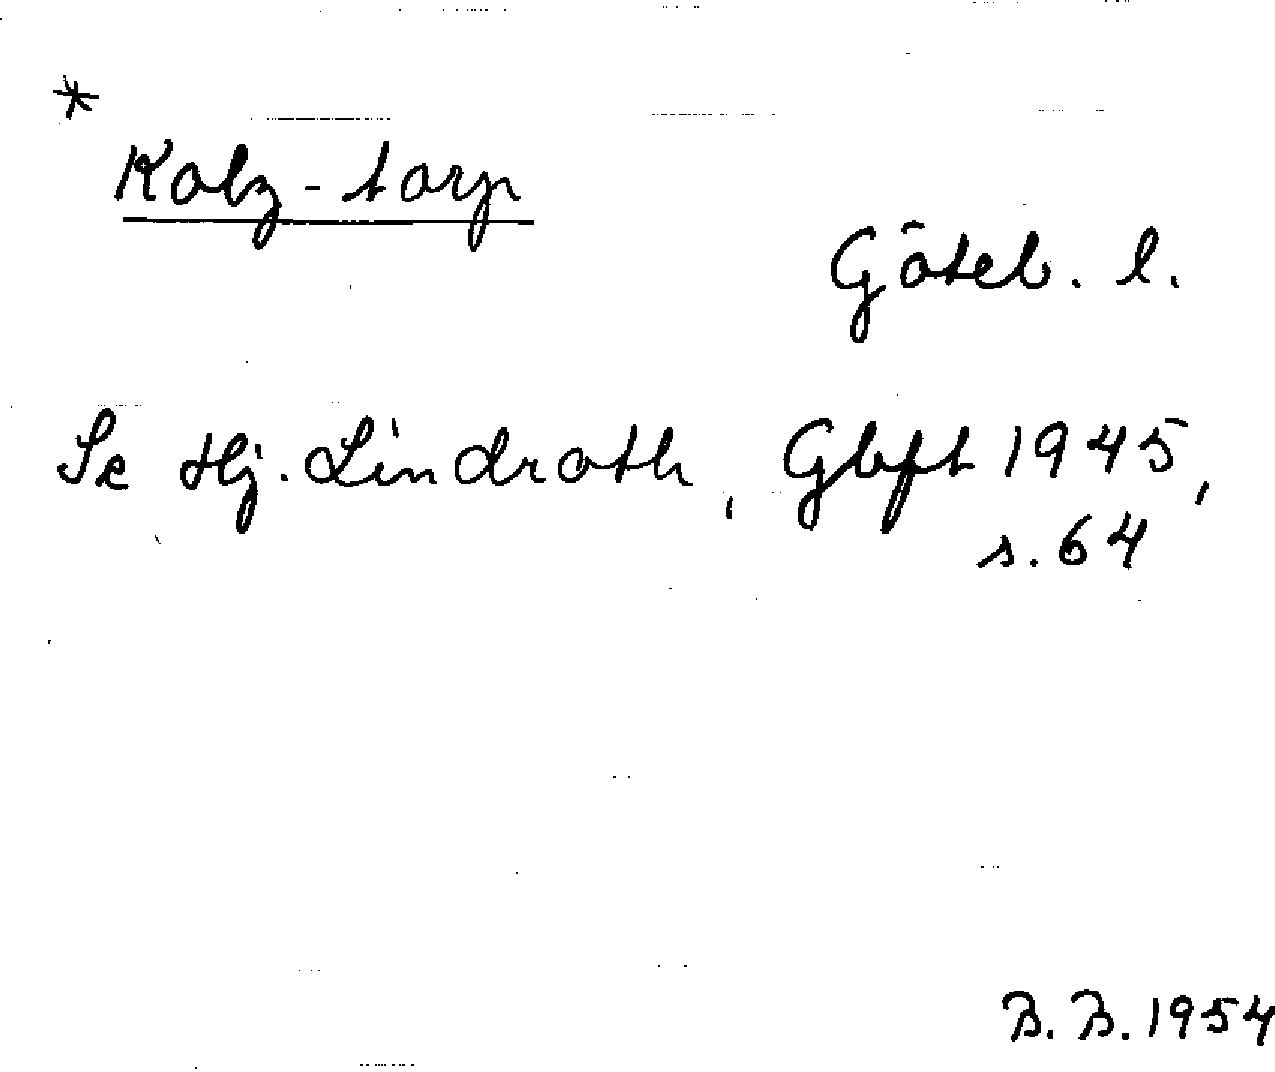 *
Kolz-torp
Göteb. l.
Se Hj. Lindroth, Gbgft 1945,
s. 64
B. B. 1954